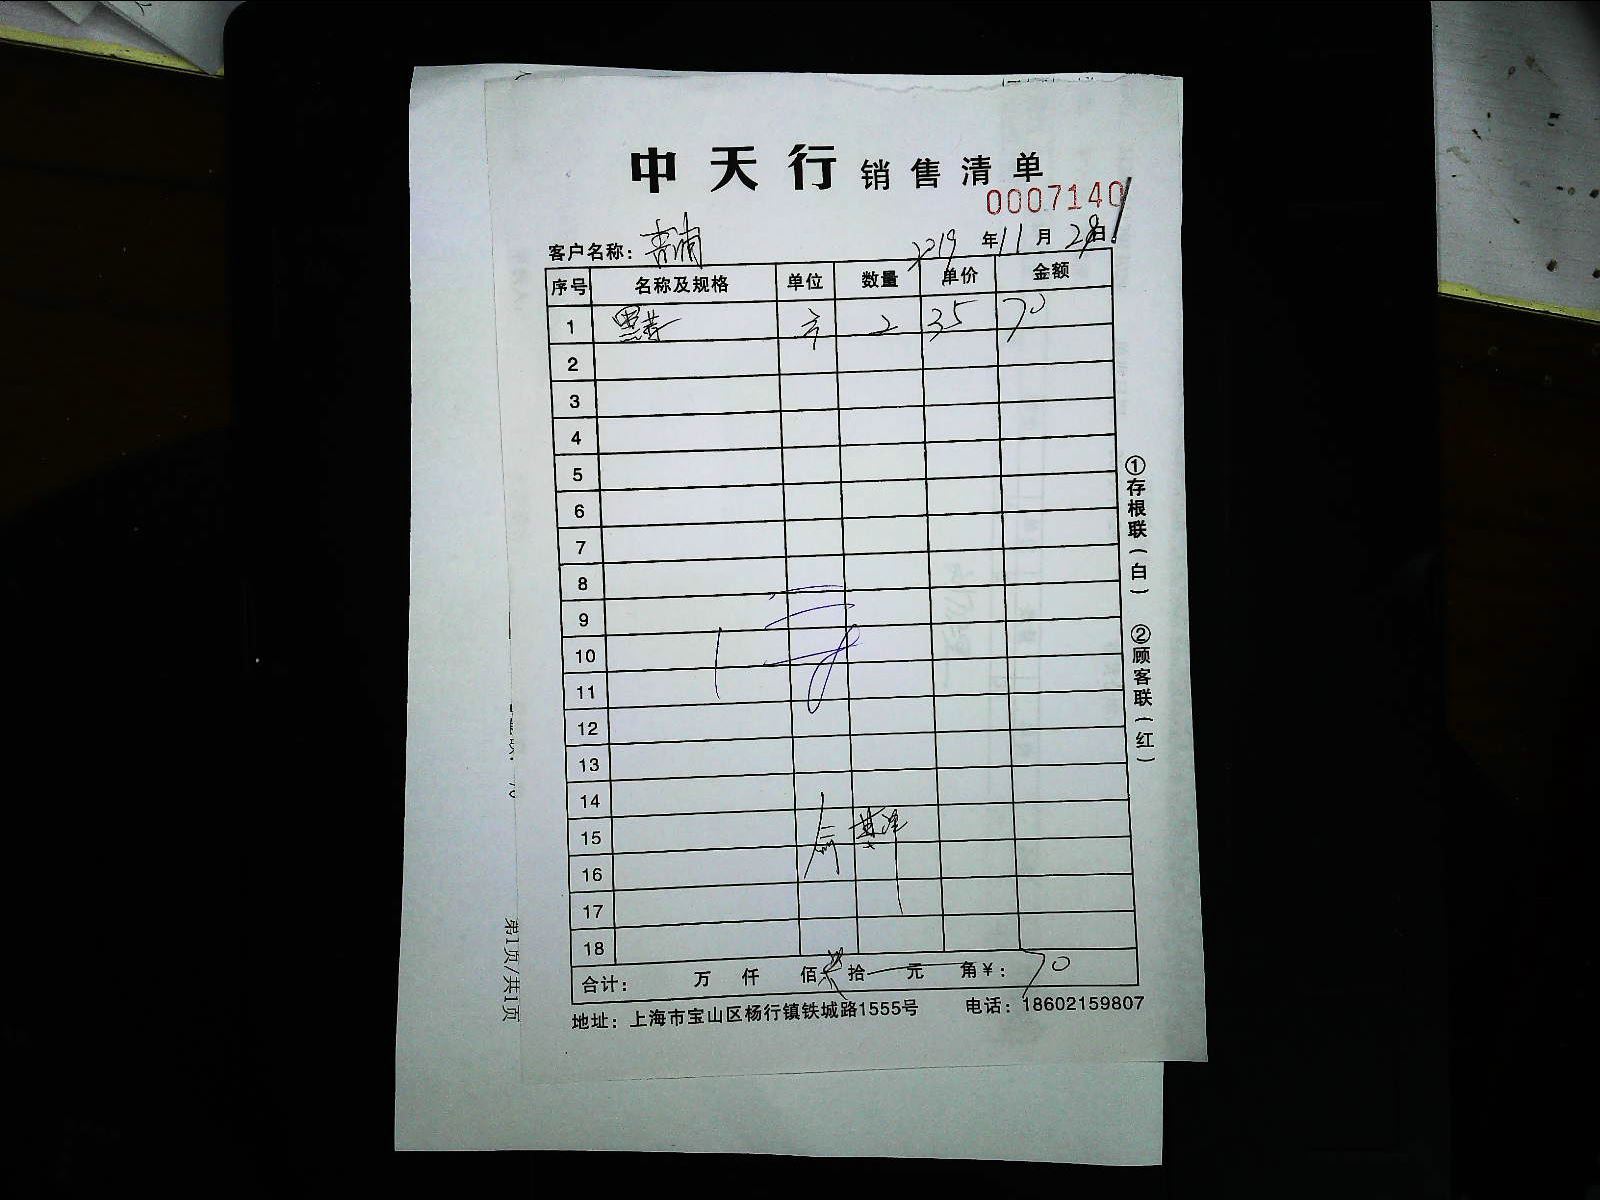 中天行 销售清单
0007140
客户名称： 2019年11月28日
序号 名称及规格 单位 数量 单价 金额
1 2 35 70
2
3
4
5
6
7
8
9
10
11
12
13
14
15
16
17
18
合计： 万 仟 佰 柒拾 元 角 ¥：70
地址：上海市宝山区杨行镇铁城路1555号 电话：18602159807
①存根联(白) ②顾客联(红)
第1页/共1页